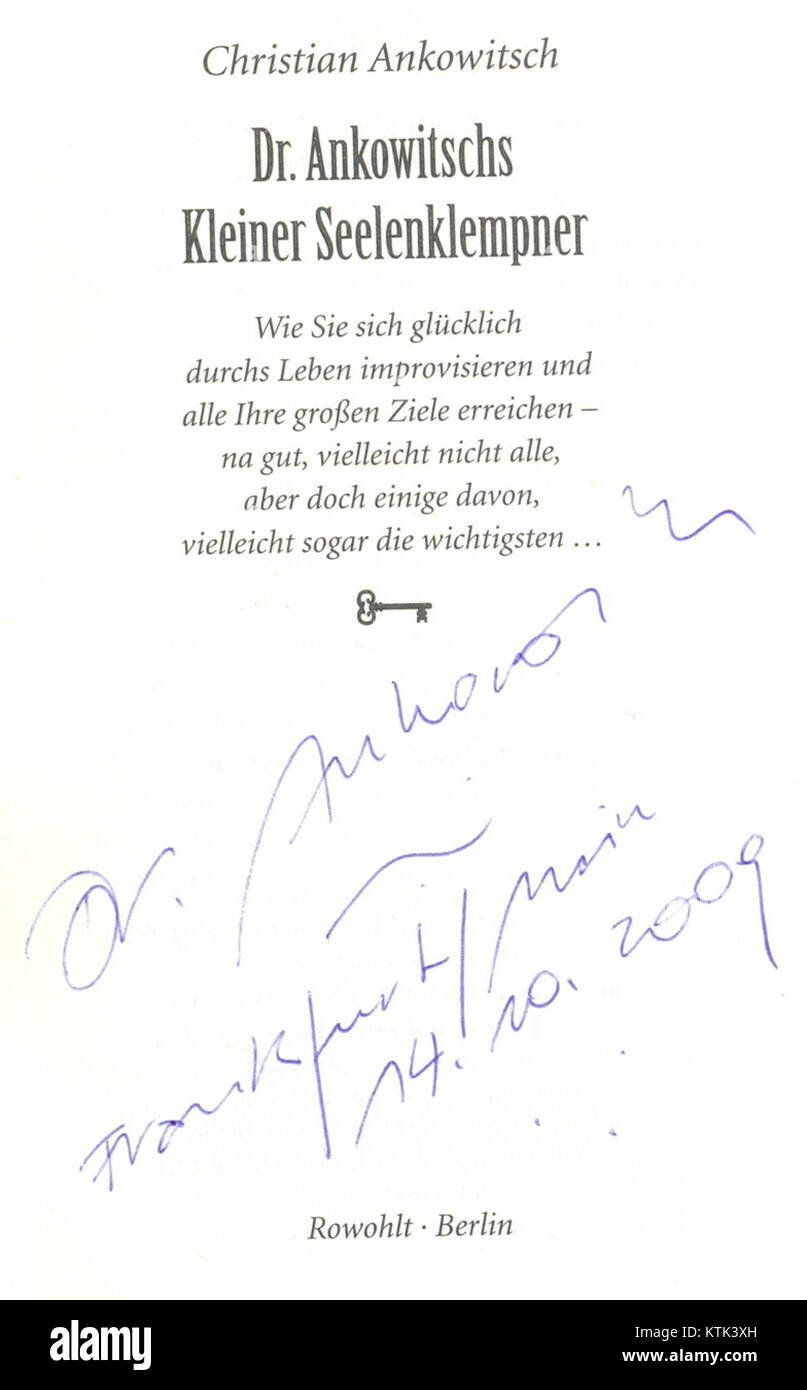 Christian Ankowitsch
Dr. Ankowitschs
Kleiner Seelenklempner
Wie Sie sich glücklich
durchs Leben improvisieren und
alle Ihre großen Ziele erreichen –
na gut, vielleicht nicht alle,
aber doch einige davon,
vielleicht sogar die wichtigsten …
Dr.
Frankfurt/Main
14. 10. 2009
Rowohlt · Berlin
alamy
Image ID: KTK3XH
www.alamy.com